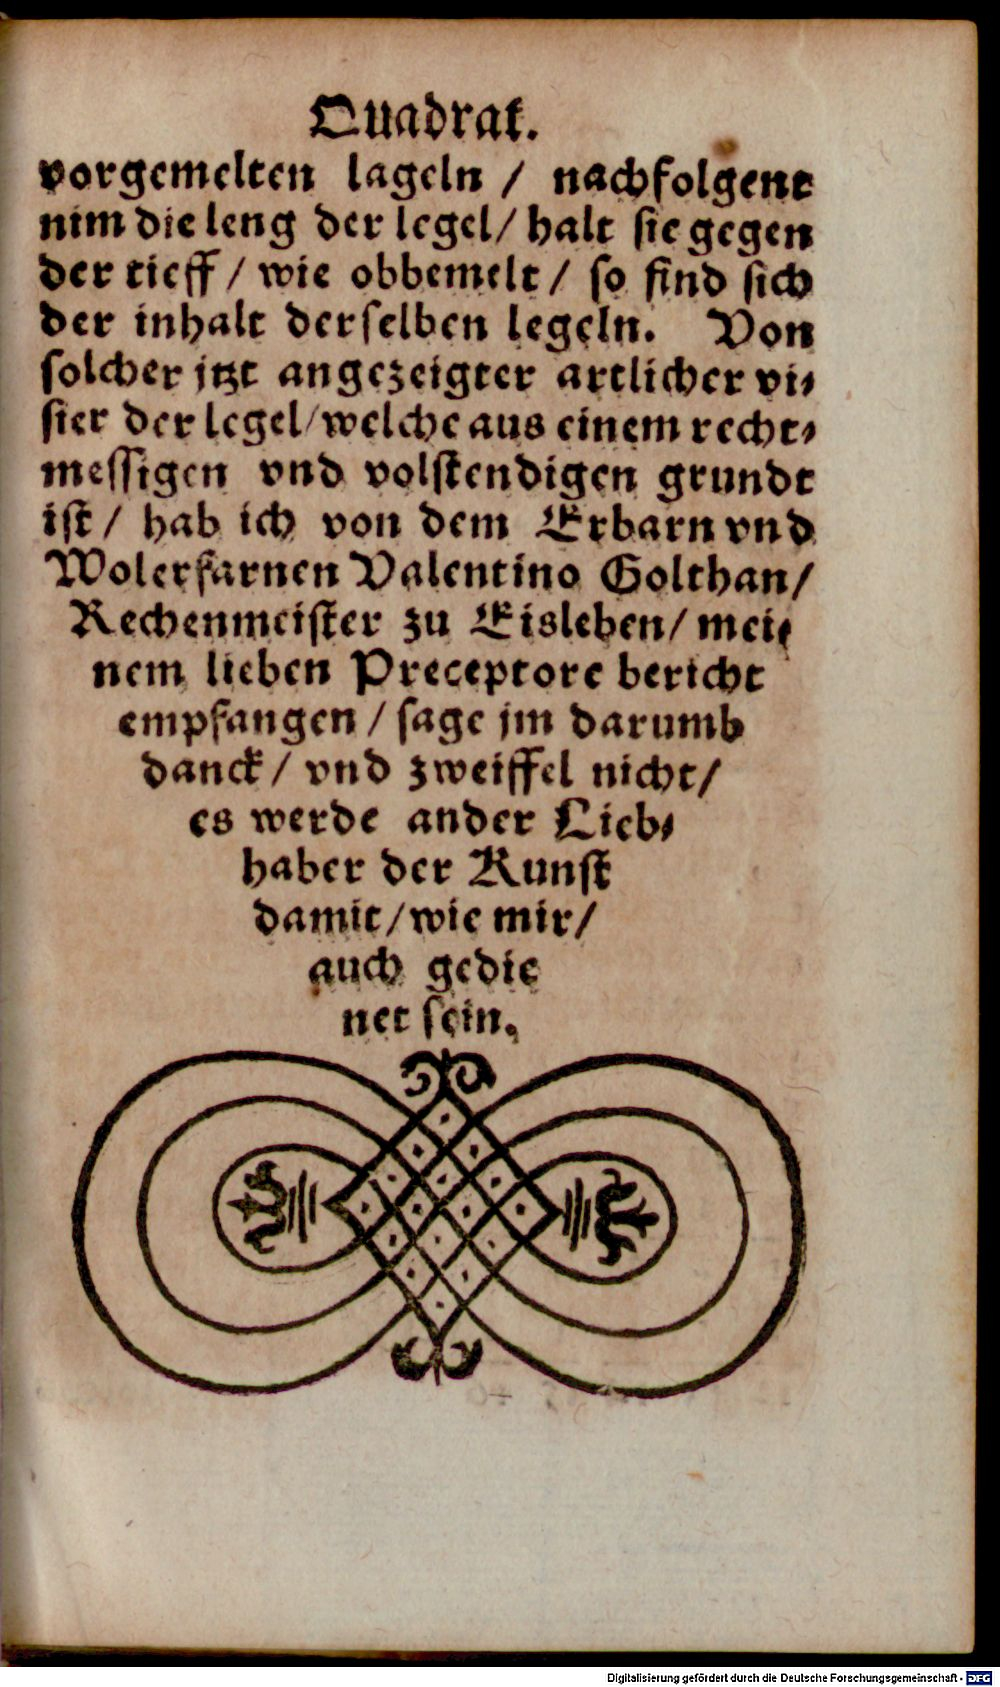 Quadrat.
vorgemelten lageln / nachfolgent
nim die leng der legel/ halt sie gegen
der tieff / wie obbemelt / so find sich
der inhalt derselben legeln. Von
solcher jtzt angezeigter artlicher vi⸗
sier der legel/welche aus einem recht⸗
messigen vnd volstendigen grundt
ist / hab ich von dem Erbarn vnd
Wolerfarnen Valentino Golthan/
Rechenmeister zu Eisleben/ mei⸗
nem lieben Preceptore bericht
empfangen / sage jm darumb
danck/ vnd zweiffel nicht/
es werde ander Lieb⸗
haber der Kunst
damit/wie mir/
auch gedie
net sein.
Digitalisierung gefördert durch die Deutsche Forschungsgemeinschaft - DFG